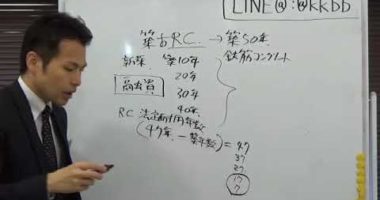 LINE@:@kkbb
築古RC → 築50年
新築 築10年 鉄筋コンクリート
20年
融資 30年
40年
RC 法定耐用年数
(47年 - 築年数) = 47
37
27
17
7